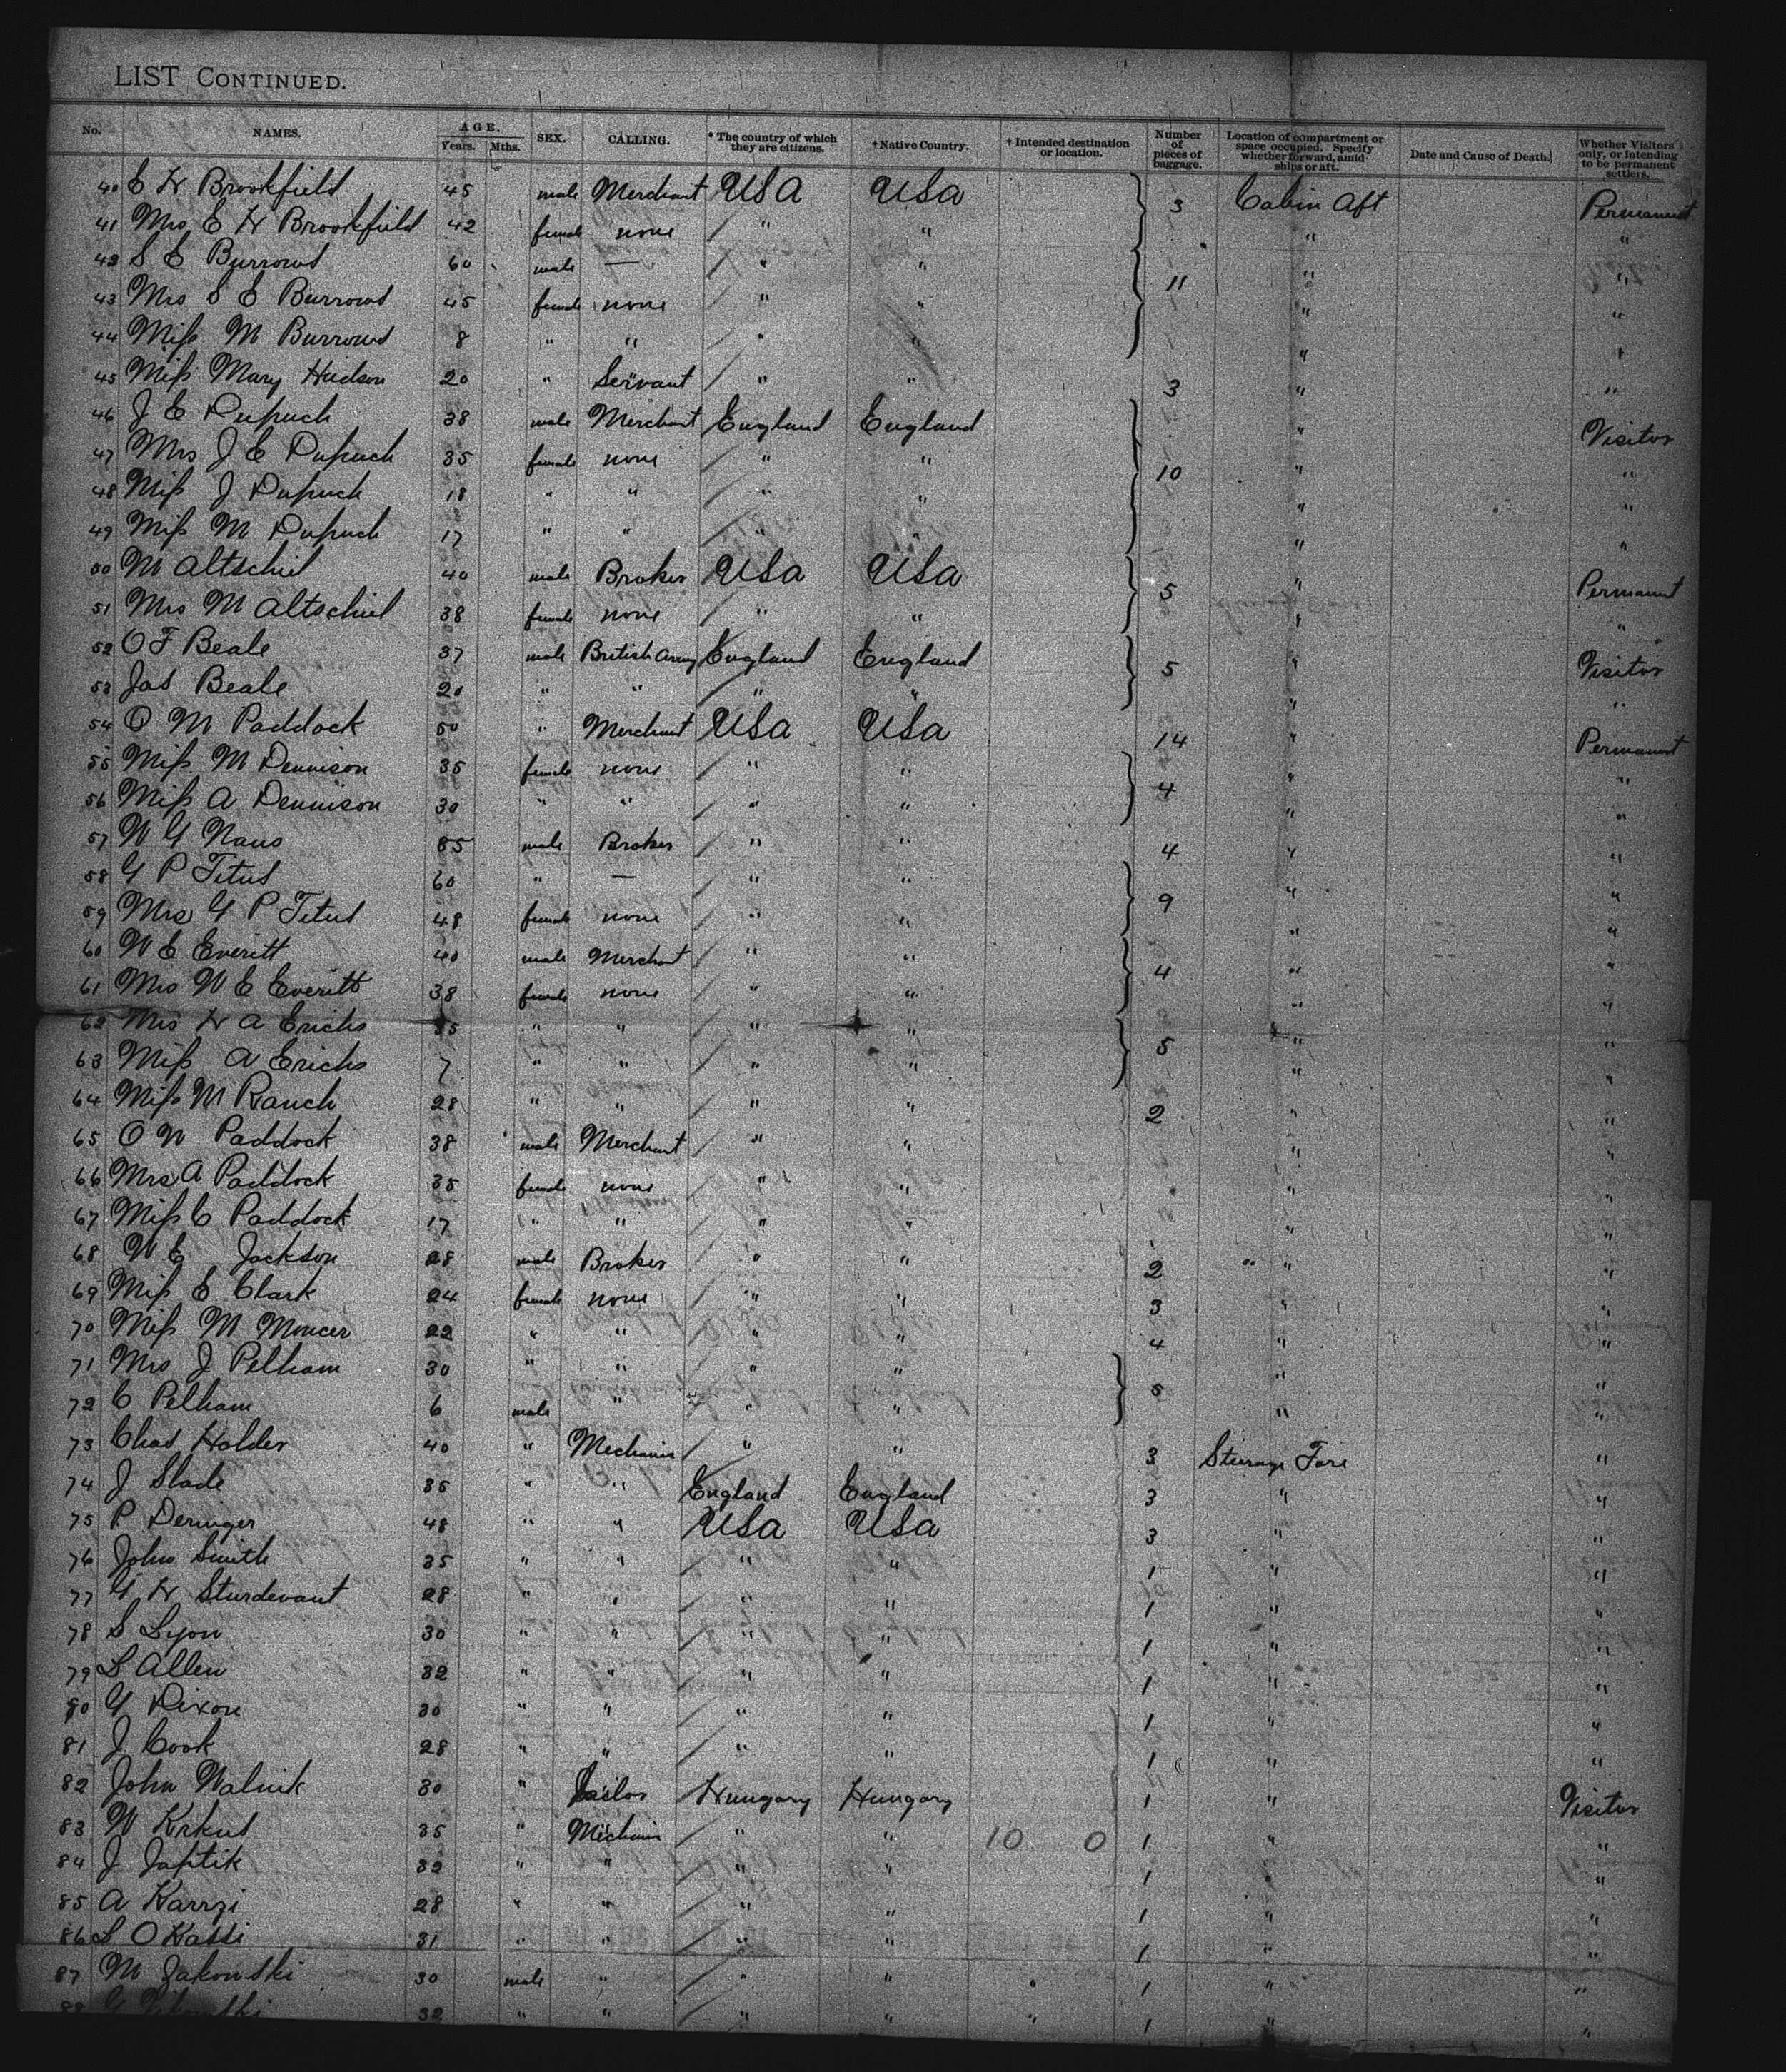 LIST CONTINUED.
No. NAMES. AGE. Years. Mths. SEX. CALLING. * The country of which they are citizens. † Native Country. † Intended destination or location. Number of pieces of baggage. Location of compartment or space occupied. Specify whether forward, amidships or aft. Date and Cause of Death. Whether Visitors only, or intending to be permanent settlers.
40 E H Brookfield 45 male Merchant USA USA 3 Cabin Aft Permanent
41 Mrs E H Brookfield 42 female none " " " "
42 S E Burrows 60 male — " " 11 " "
43 Mrs S E Burrows 45 female none " " " "
44 Miss M Burrows 8 " " " " " "
45 Miss Mary Hudson 20 " Servant " " 3 " "
46 J E Dupuch 38 male Merchant England England " Visitor
47 Mrs J E Dupuch 35 female none " " 10 " "
48 Miss J Dupuch 18 " " " " " "
49 Miss M Dupuch 17 " " " " " "
50 M Altschul 40 male Broker USA USA 5 " Permanent
51 Mrs M Altschul 38 female none " " " "
52 O F Beale 37 male British Army England England 5 " Visitor
53 Jas Beale 20 " " " " " "
54 O M Paddock 50 " Merchant USA USA 14 " Permanent
55 Miss M Dennison 35 female none " " 4 " "
56 Miss A Dennison 30 " " " " " "
57 W G Naus 55 male Broker " " 4 " "
58 G P Titus 60 " — " " 9 " "
59 Mrs G P Titus 48 female none " " " "
60 W E Everitt 40 male Merchant " " 4 " "
61 Mrs W E Everitt 38 female none " " " "
62 Mrs H A Erichs 35 " " " " 5 " "
63 Miss A Erichs 7 " " " " " "
64 Miss M Rauch 28 " " " " 2 " "
65 O W Paddock 38 male Merchant " " " "
66 Mrs A Paddock 35 female none " " " "
67 Miss C Paddock 17 " " " " " "
68 W E Jackson 28 male Broker " " 2 " " "
69 Miss E Clark 24 female none " " 3 " "
70 Miss M Moncer 22 " " " " 4 " "
71 Mrs J Pelham 30 " " " " 5 " "
72 C Pelham 6 male " " " " "
73 Chas Holder 40 " Mechanic " " 3 Steerage Fore "
74 J Slade 35 " " England England 3 " "
75 P Deringer 48 " " USA USA 3 " "
76 John Smith 35 " " " " 1 " "
77 G H Sturdevant 28 " " " " 1 " "
78 S Lyon 30 " " " " 1 " "
79 L Allen 32 " " " " 1 " "
80 G Dixon 30 " " " " 1 " "
81 J Cook 28 " " " " 1 " "
82 John Walnik 30 " Sailor Hungary Hungary 1 " Visitor
83 W Krkut 35 " Mechanic " " 10 0 1 " "
84 J Japtik 32 " " " " 1 " "
85 A Karrzi 28 " " " " 1 " "
86 L O Kassi 31 " " " " 1 " "
87 M Jakowski 30 male " " " " 1 " "
88 G 32 " " " " " 1 " "